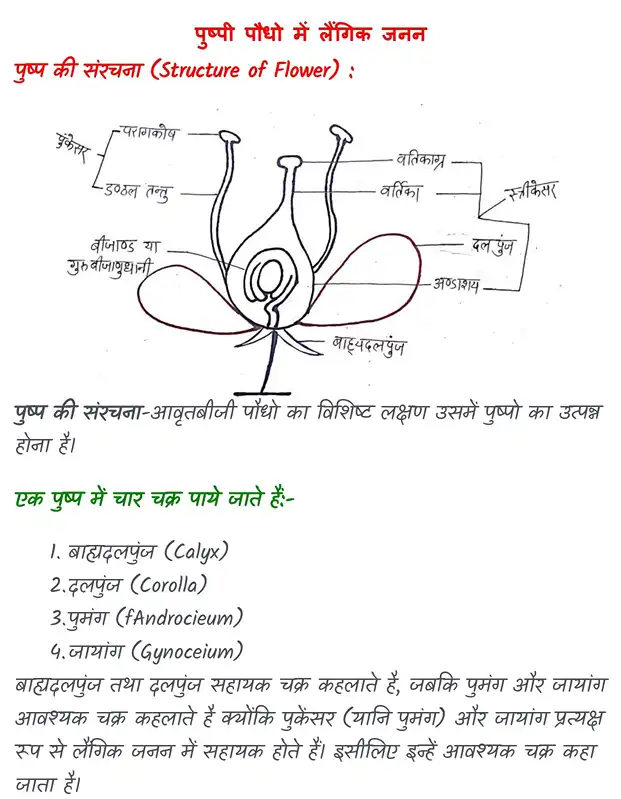 पुष्पी पौधो में लैंगिक जनन
पुष्प की संरचना (Structure of Flower) :
पुंकेसर
परागकोष
डण्ठल तन्तु
बीजाण्ड या
गुरुबीजाणुधानी
वर्तिकाग्र
वर्तिका
स्त्रीकेसर
दल पुंज
अण्डाशय
बाह्यदलपुंज
पुष्प की संरचना-आवृतबीजी पौधो का विशिष्ट लक्षण उसमें पुष्पो का उत्पन्न
होना है।
एक पुष्प में चार चक्र पाये जाते हैं:-
1. बाह्यदलपुंज (Calyx)
2.दलपुंज (Corolla)
3.पुमंग (fAndrocieum)
4.जायांग (Gynoceium)
बाह्यदलपुंज तथा दलपुंज सहायक चक्र कहलाते है, जबकि पुमंग और जायांग
आवश्यक चक्र कहलाते है क्योंकि पुकेंसर (यानि पुमंग) और जायांग प्रत्यक्ष
रूप से लैगिक जनन में सहायक होते हैं। इसीलिए इन्हें आवश्यक चक्र कहा
जाता है।